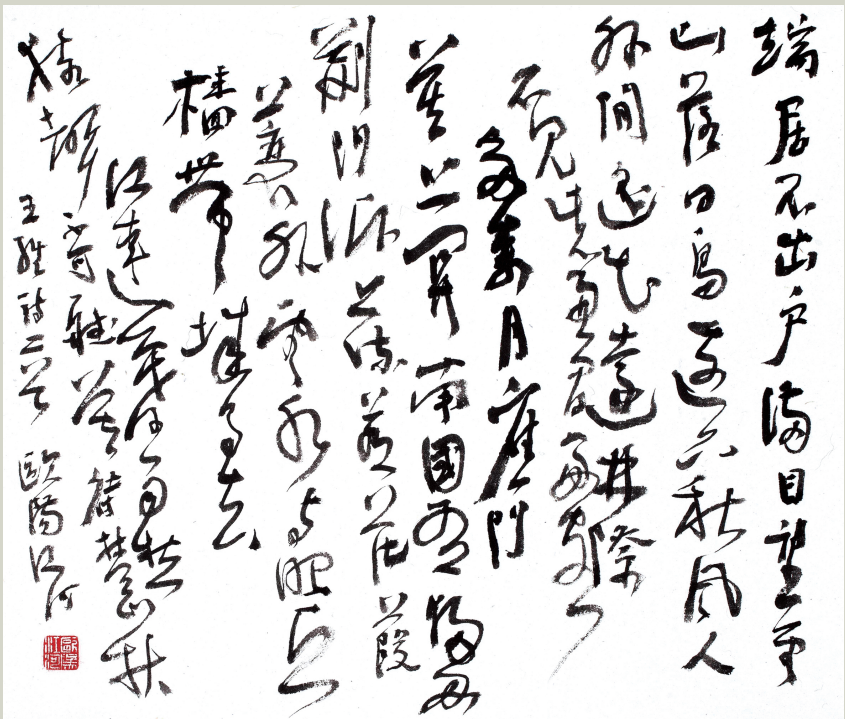 端居不出户满目望雲
山落日鸟边下秋原人
外闲遥知遠林際
不見此檐间好客
多乘月應门
莫上关南國有归舟
荆门溯上流苍茫葭
菼外雲水与昭丘
樯带城乌去
江連暮雨愁
猿聲
不可聽莫待楚山秋
王维诗二首 欧阳江河